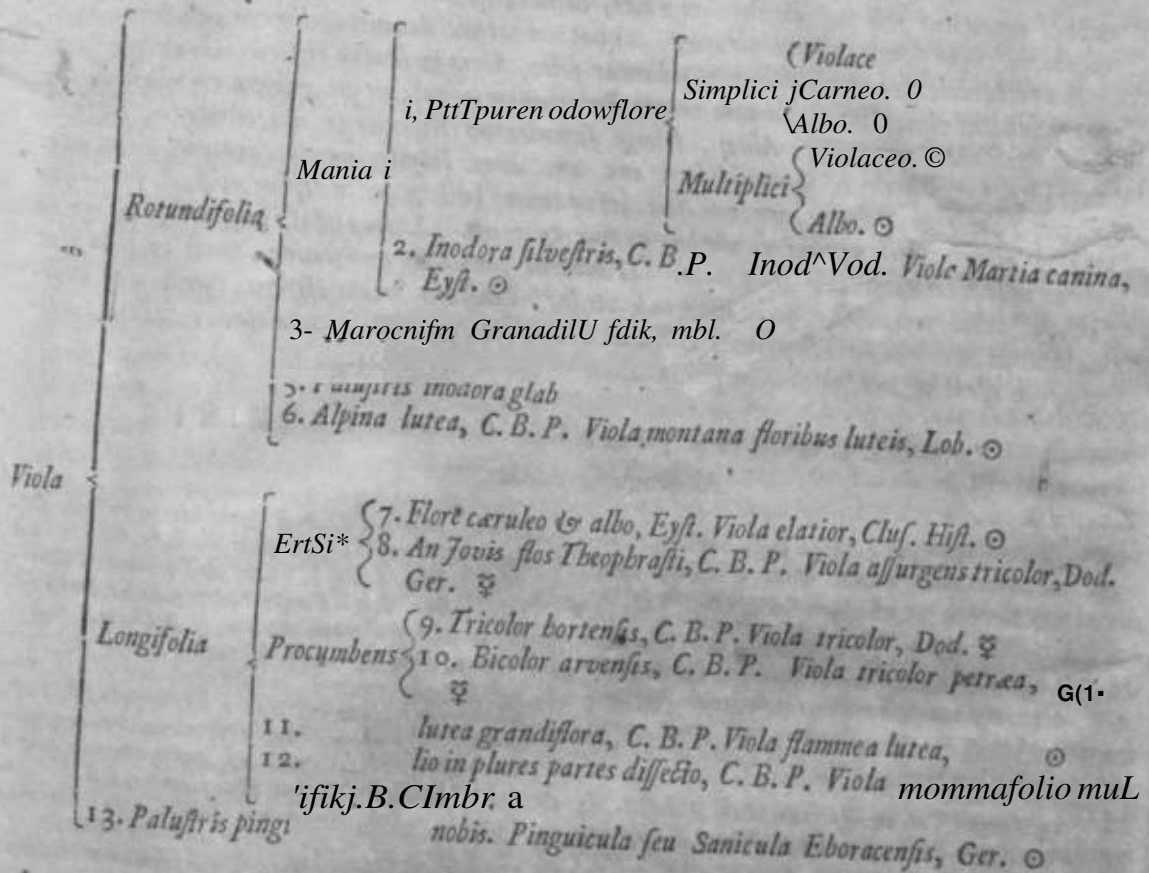 (Violace
Simplici jCarneo. 0
\Albo. 0
i, PttTpuren odowflore
Violaceo. ©
Multiplici
Albo. ☉
Mania i
Rotundifolia
2. Inodora ſilveſtris, C. B.P. Inod^Vod. Viole Martia canina,
Eyſt. ☉
3- Marocnifm GranadilU fdik, mbl. O
inodora glab
6. Alpina lutea, C. B. P. Viola montana floribus luteis, Lob. ☉
Viola
7. Flore cæruleo & albo, Eyſt. Viola elatior, Cluſ. Hiſt. ☉
ErtSi*
8. An Jovis flos Theophraſti, C. B. P. Viola aſſurgens tricolor, Dod.
Ger. ☿
Longifolia
9. Tricolor hortenſis, C. B. P. Viola tricolor, Dod. ☿
Procumbens
10. Bicolor arvenſis, C. B. P. Viola tricolor petræa, G(1▪
☿
11. lutea grandiflora, C. B. P. Viola flammea lutea, ☉
12. lio in plures partes diſſecto, C. B. P. Viola mommafolio muL
'ifikj.B.CImbr. a
13. Paluſtris pingı nobis. Pinguicula ſeu Sanicula Eboracenſis, Ger. ☉